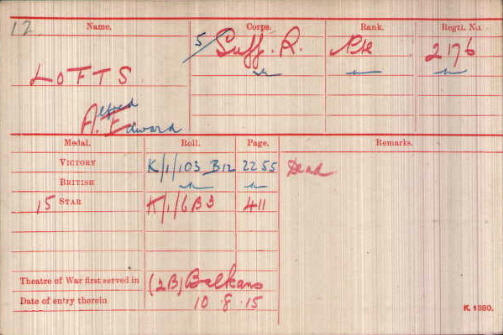 12 Name. Corps. Rank. Regtl. No.
5/ Suff. R. Pte 2176
LOFTS
Alfred
A. Edward
Medal. Roll. Page. Remarks.
VICTORY K/1/103 B12 2255 Dead
BRITISH
15 STAR K/1/6B3 411
Theatre of War first served in (2B) Balkans
Date of entry therein 10.8.15
K. 1380.